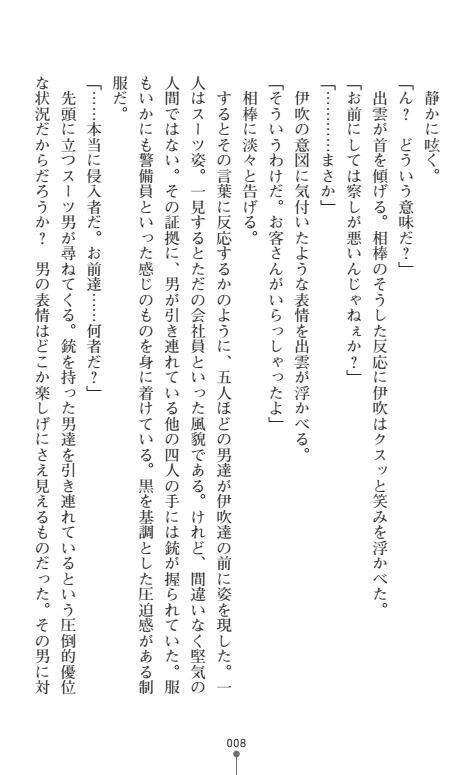 静かに呟く。
「ん？　どういう意味だ？」
　出雲が首を傾げる。相棒のそうした反応に伊吹はクスッと笑みを浮かべた。
「お前にしては察しが悪いんじゃねぇか？」
「…………まさか」
　伊吹の意図に気付いたような表情を出雲が浮かべる。
「そういうわけだ。お客さんがいらっしゃったよ」
　相棒に淡々と告げる。
　するとその言葉に反応するかのように、五人ほどの男達が伊吹達の前に姿を現した。一
人はスーツ姿。一見するとただの会社員といった風貌である。けれど、間違いなく堅気の
人間ではない。その証拠に、男が引き連れている他の四人の手には銃が握られていた。服
もいかにも警備員といった感じのものを身に着けている。黒を基調とした圧迫感がある制
服だ。
「……本当に侵入者だ。お前達……何者だ？」
　先頭に立つスーツ男が尋ねてくる。銃を持った男達を引き連れているという圧倒的優位
な状況だからだろうか？　男の表情はどこか楽しげにさえ見えるものだった。その男に対
008